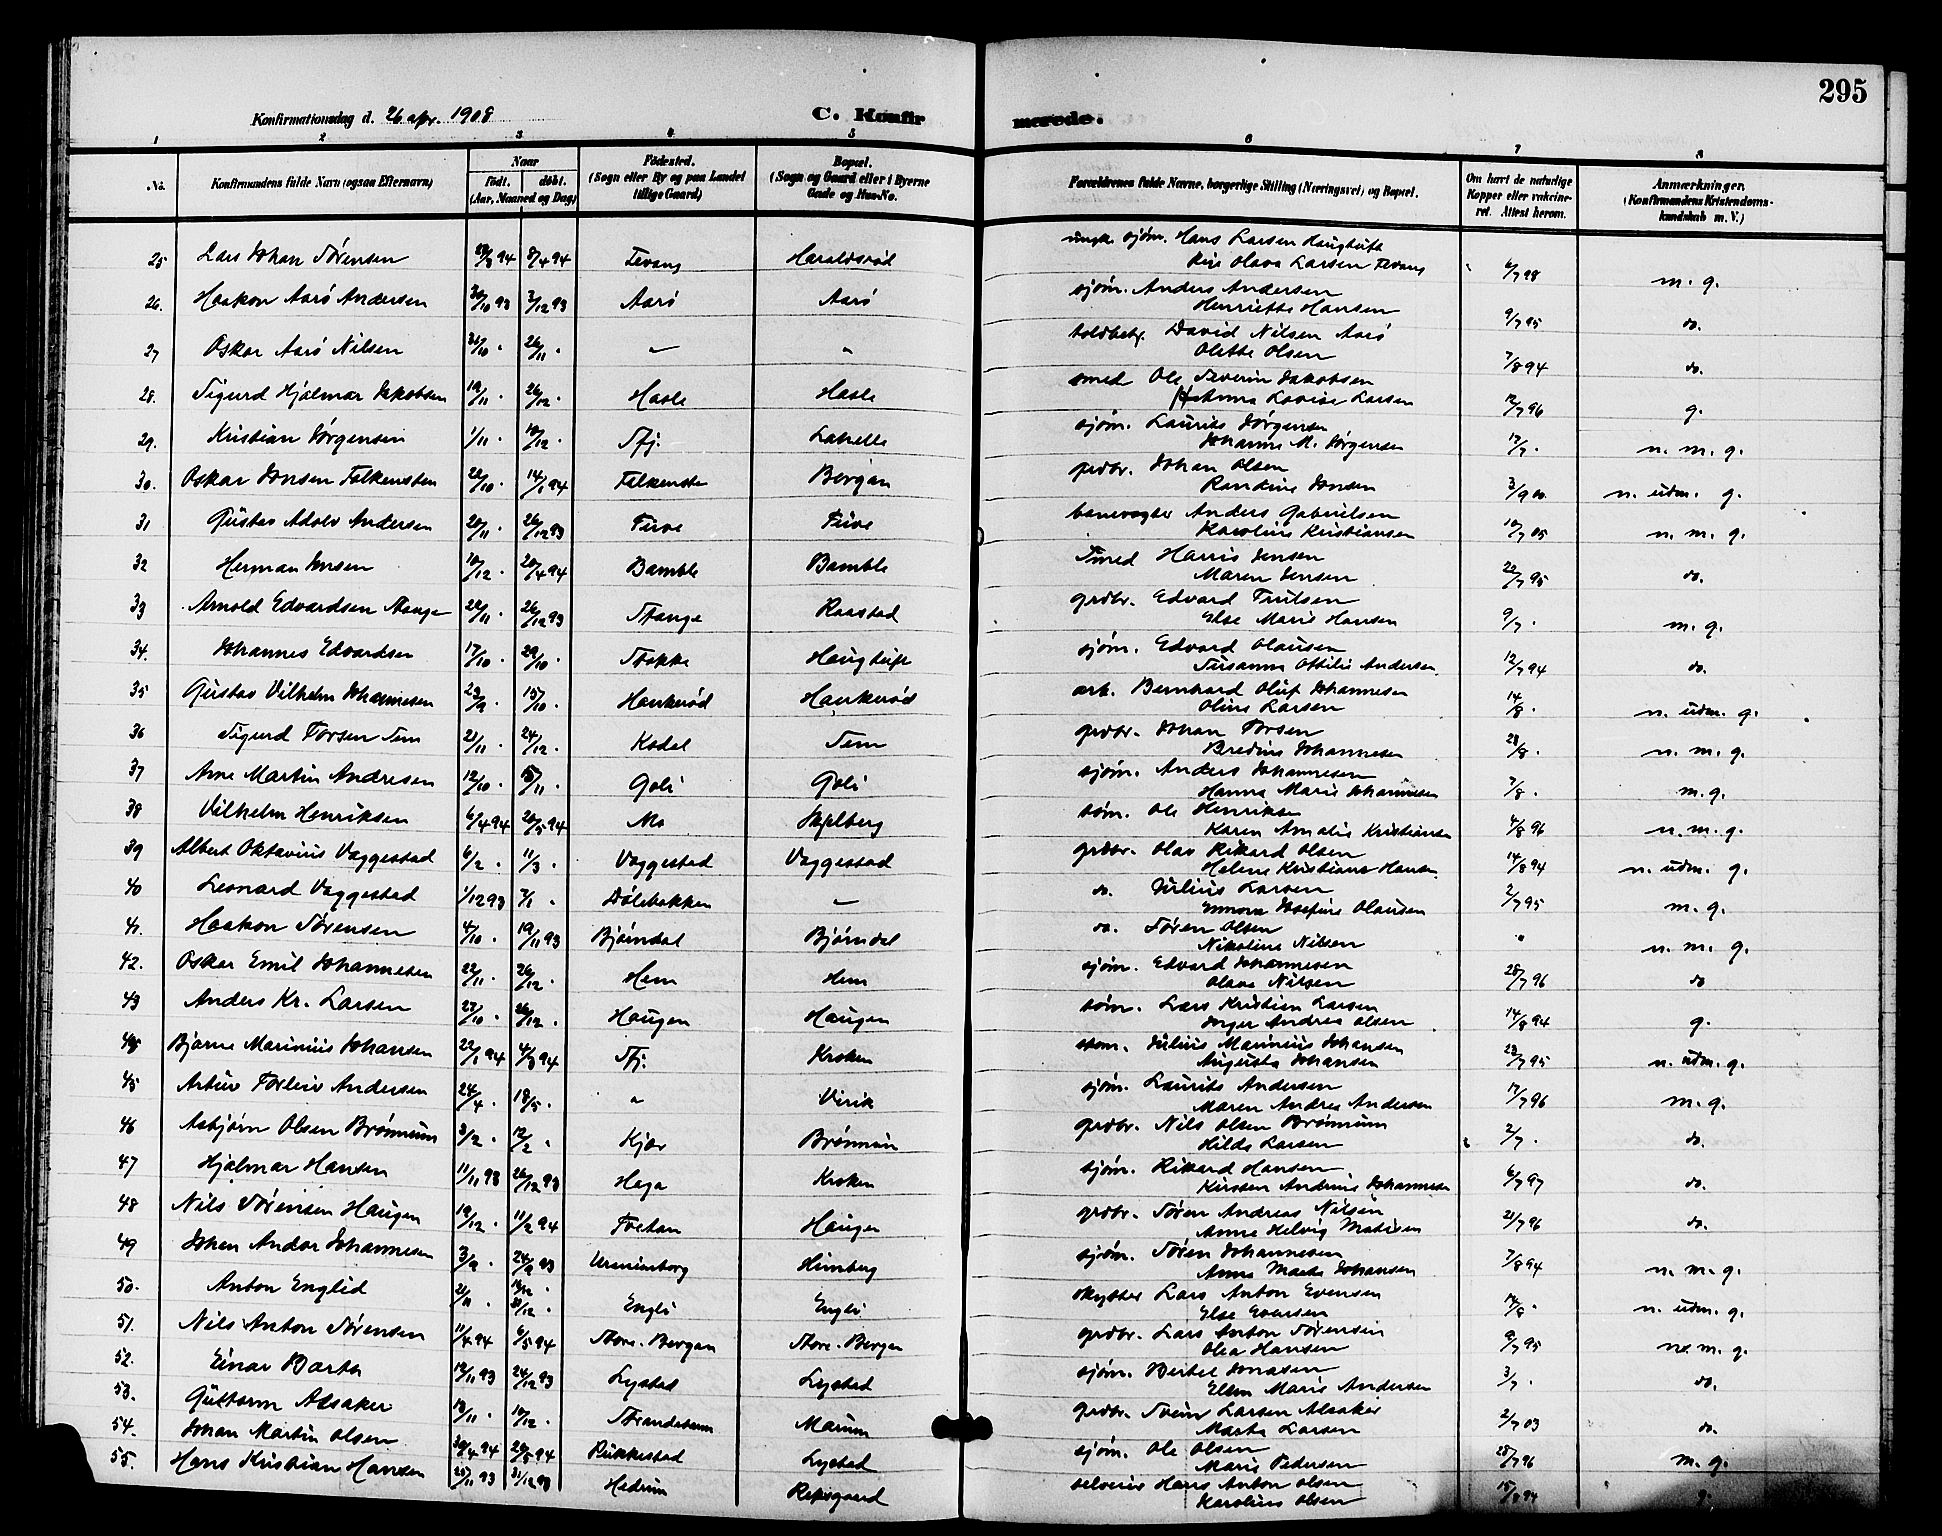 295
Konfirmationsdag d. 26 apr. 1908 C. Konfirmerede.
1 2 3 4 5 6 7 8
No. Konfirmandens fulde Navn (ogsaa Efternavn) Naar födt. döbt. (Aar, Maaned og Dag) Födested. (Sogn eller By og paa Landet tillige Gaard) Bopæl. (Sogn og Gaard eller i Byerne Gade og Hus-No. Forældrenes fulde Navne, borgerlige Stilling (Næringsvei) og Bopæl. Om havt de naturlige Kopper eller vaccineret. Attest herom. Anmærkninger. (Konfirmandens Kristendomskundskab m. V.)
25 Lars Johan Sørensen 8/4 94 Tevang Haraldsrød ungk. sjøm. Hans Larsen Haugtuft 6/7 98 m. g.
Olava Larsen Tevang
26. Haakon Aarø Andersen 30/10 93 3/12 93 Aarø Aarø sjøm. Anders Andersen 9/7 95 do.
Henriette Hansen
27 Oskar Aarø Nilsen 31/10 . 26/11 . " " toldbetj. David Nilsen Aarø 7/8 94 do.
Olette Olsen
28. Sigurd Hjalmar Jakobsen 19/11 . 26/12 . Hasle Hasle smed Ole Severin Jakobsen 12/7 96 g.
Anna Lovise Larsen
29. Kristian Jørgensen 1/11 . 10/12 . Sfj. Lahelle sjøm. Laurits Jørgensen 17/7 . n. m. g.
Johanne M. Jørgensen
30. Oskar Jensen Falkensten 22/10 . 14/1 94 Falkenste Bergan grdbr. Johan Olsen 3/9 00 n. udm. g.
Randine Jensen
31 Gustav Adolv Andersen 20/11 . 26/12 93 Furve Furve banevogter Anders Gabrielsen 10/7 05 n. m. g.
Karoline Kristiansen
32 Herman Jensen 10/12 . 20/4 94 Bamble Bamble Smed Harris Jensen 22/7 95 do.
Maren Jensen
33 Arnold Edvardsen Stange 22/11 . 26/12 93 Stange Raastad grdbr. Edvard Trulsen 9/7 . m. g.
Else Marie Hansen
34. Johannes Edvardsen 17/10 . 29/10 . Stokke Haugtuft sjøm. Edvard Olausen 12/7 94 do.
Susanna Ottilie Andersen
35 Gustav Vilhelm Johannesen 23/9 . 15/10 . Haukerød Haukerød arb. Bernhard Oluf Johannesen 14/8 . n. udm. g.
Oline Larsen
36 Sigurd Torsen Sem 21/11 . 24/12 . Kodal Sem grdbr. Johan Torsen 28/8 . n. m. g.
Bredine Johannesen
37 Arne Martin Andresen 12/10 . Goli Goli sjøm. Anders Johannesen 7/8 . m. g.
Hanna Marie Johannesen
38 Vilhelm Henriksen 6/4 94 20/5 94 Mo Skjelberg søm. Ole Henriksen 4/8 96 n. m. g.
Karen Amalie Kristiansen
39 Albert Oktavius Vaggestad 6/2 . 11/3 . Vaggestad Vaggestad grdbr. Olav Rikard Olsen 14/8 94 n. udm. g.
Helene Kristiane Hansen
40 Leonard Vaggestad 1/12 93 7/1 . Dølebakken " do. Julius Larsen 2/7 95 m. g.
Emma Josefine Olausen
41. Haakon Sørensen 4/10 . 19/11 93 Bjørndal Bjørndal do. Søren Olsen " n. m. g.
Nikoline Nilsen
42. Oskar Emil Johannesen 22/11 . 26/12 . Hem Hem sjøm. Edvard Johannesen 28/7 96 do
Olava Nilsen
43 Anders Kr. Larsen 27/10 . 26/12 . Haugen Haugen søm. Lars Kristian Larsen 14/8 94 g.
Inger Andrea Olsen
44 Bjarne Marinius Johansen 22/1 94 4/3 94 Sfj. Kroken søm. Julius Marinius Johansen 23/7 95 n. udm. g.
Augusta Johansen
45 Artur Torleiv Andersen 24/4 . 18/5 . " Virik sjøm. Laurits Andersen 17/7 96 m. g.
Maren Andrea Andersen
46 Asbjørn Olsen Brønnum 3/2 . 12/2 . Kjær Brønnum grdbr. Nils Olsen Brønnum 2/7 . do.
Hilda Larsen
47 Hjalmar Hansen 11/11 93 26/12 93 Haga Kroken sjøm. Rikard Hansen 6/7 97 do.
Kirsten Andrine Johannesen
48 Nils Sørensen Haugen 19/12 . 11/2 94 Fostan Haugen grdbr. Søren Andreas Nilsen 21/7 96 do.
Anne Helvig Matisen
49 Johan Andor Johannesen 3/9 . 24/9 93 Unneberg Himberg sjøm. Søren Johannesen 7/8 94 n. m. g.
Anna Johansen
50. Anton Englid 21/11 . 31/12 . Engli Engli skytter Lars Anton Evensen 14/8 . n. udm. g.
Else Evensen
51. Nils Anton Sørensen 11/4 94 6/5 94 Store-Bergan Store-Bergan grdbr. Lars Anton Sørensen 9/7 95 n. m. g.
Olea Hansen
52. Einar Barta 19/11 93 24/12 93 Lystad Lystad sjøm. Bertel Jonasen 3/7 . do.
Ellen Marie Andersen
53. Guttorm Alsaker 18/11 . 10/12 . Strandebarm Marum grdbr. Svein Larsen Alsaker 2/7 03 do.
Marta Larsen
54. Johan Martin Olsen 30/4 94 20/5 94 Rukkestad Lystad sjøm. Ole Olsen 28/7 96 m. g.
Marie Pedersen
55. Hans Kristian Hansen 25/11 93 31/12 93 Hedrum Repsgaard selveier Hans Anton Olsen 15/8 94 g.
Karoline Olsen